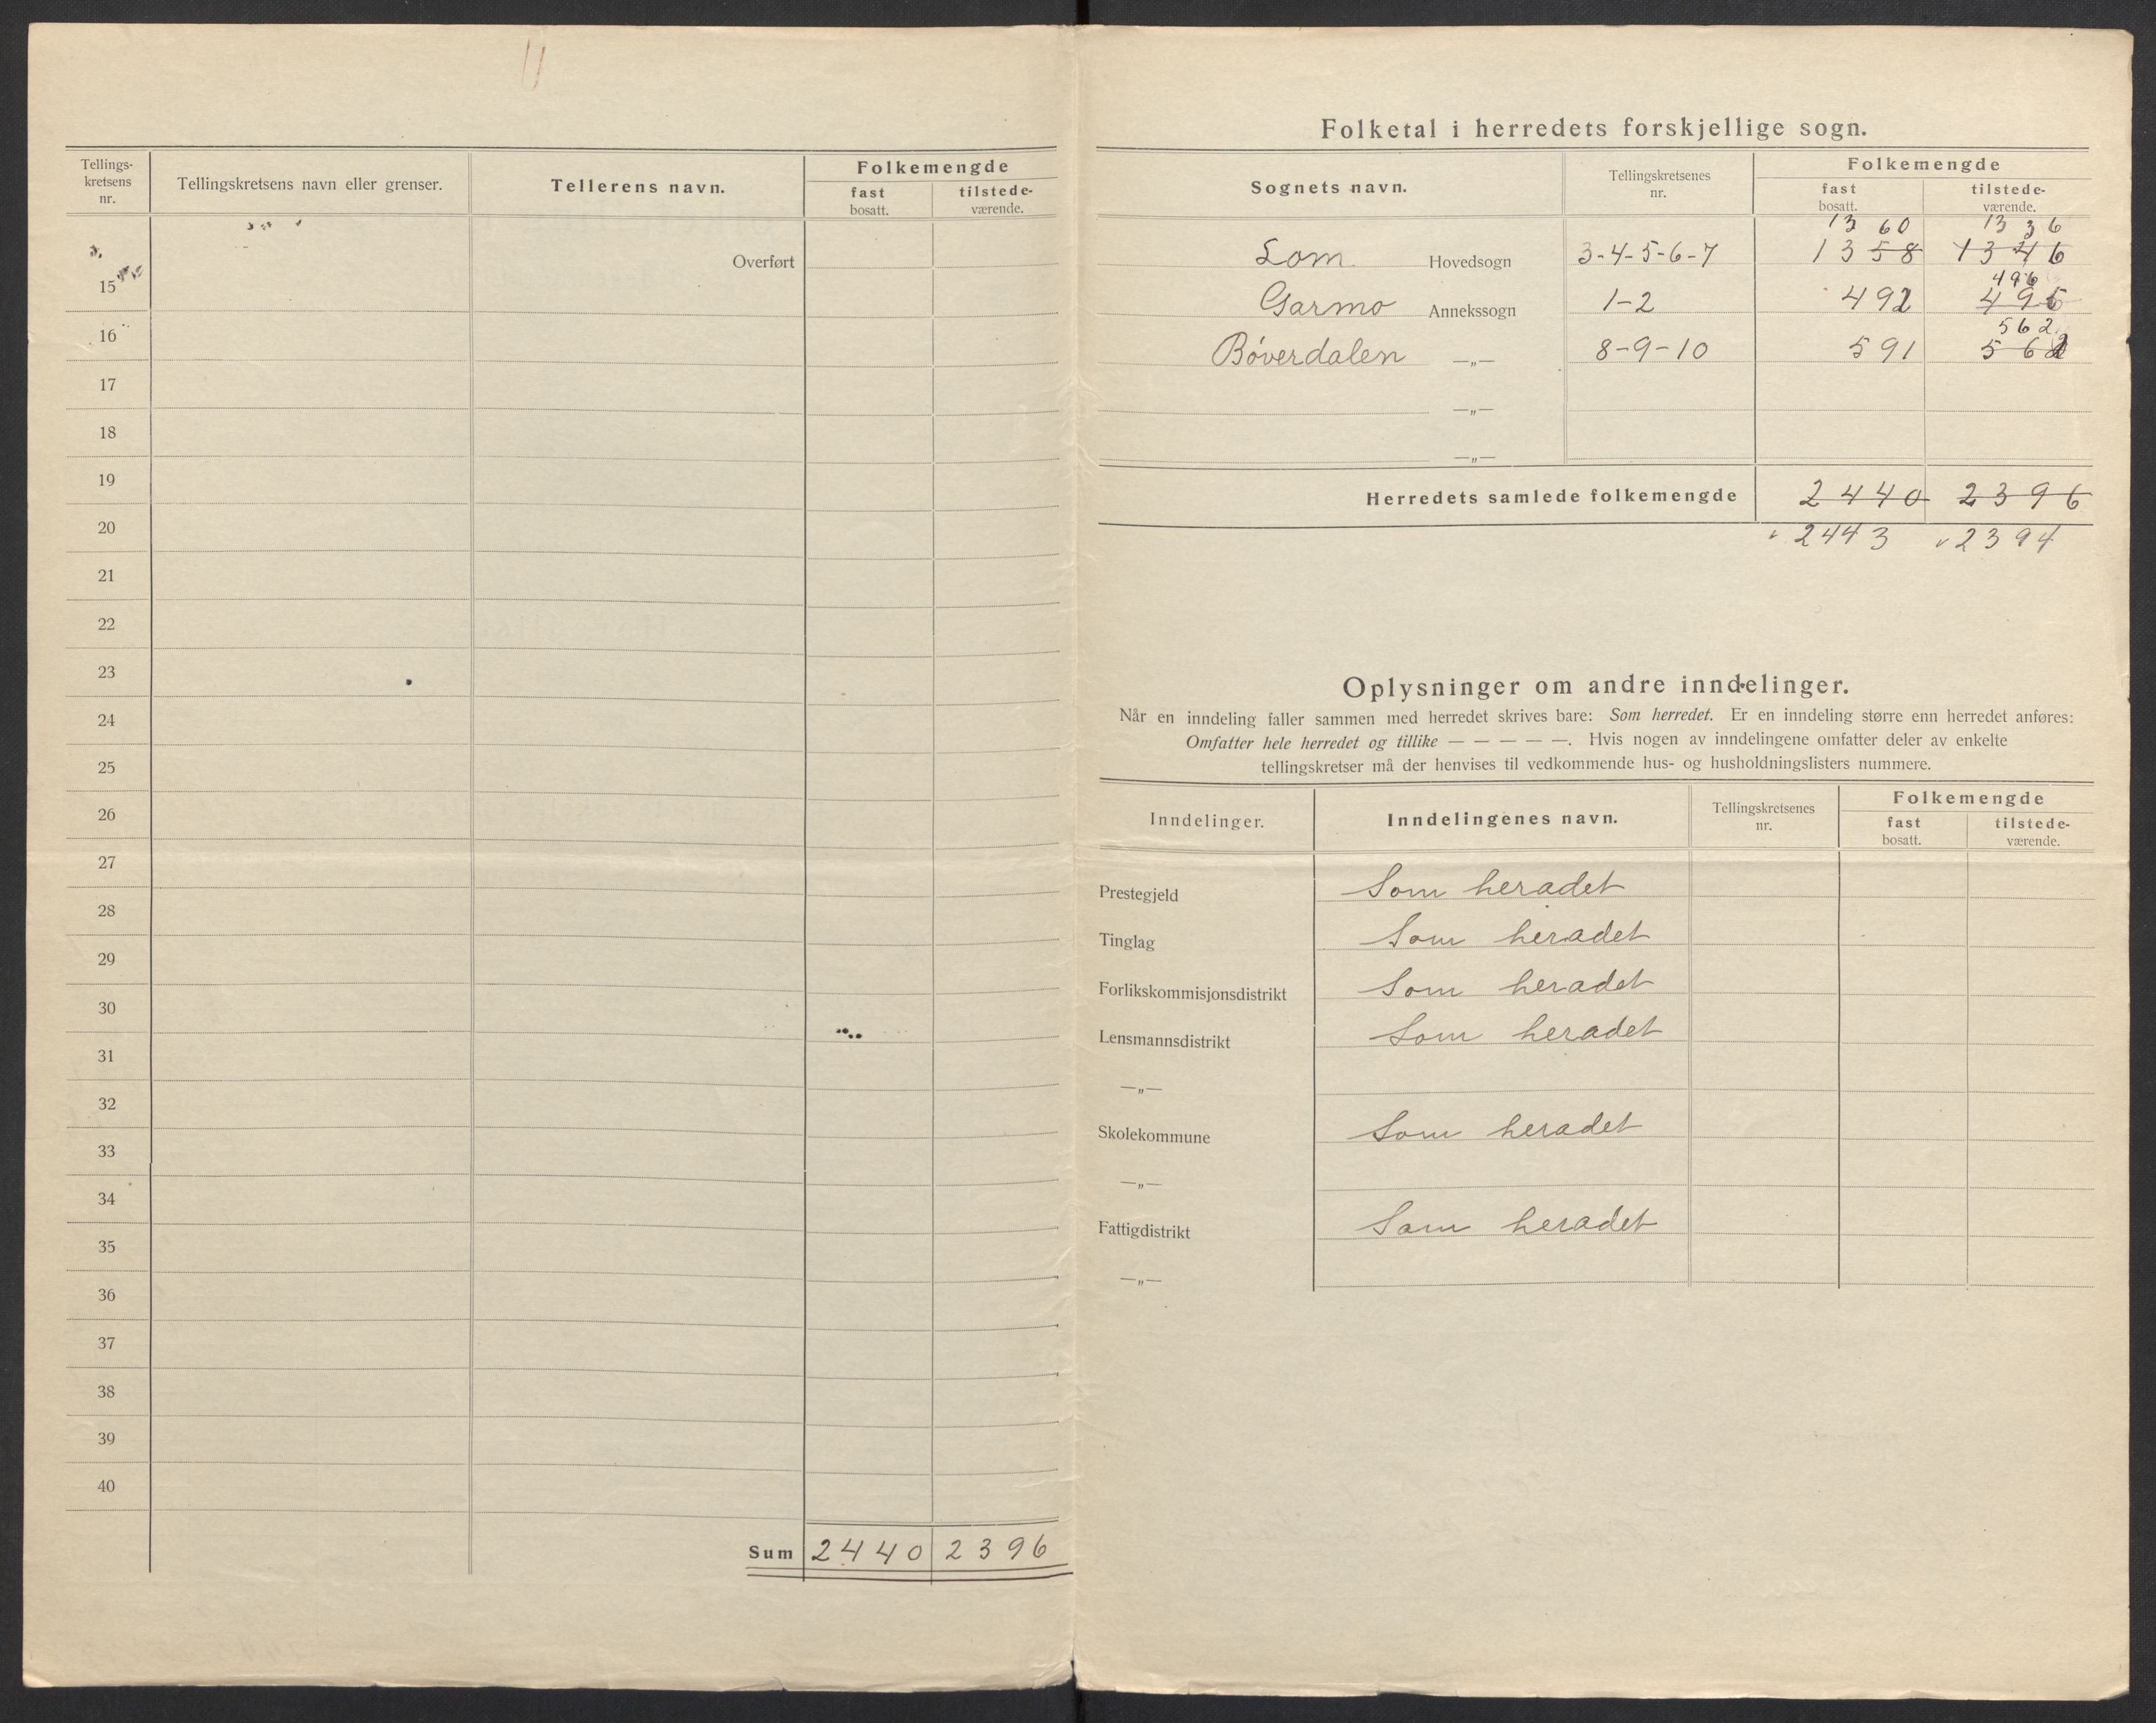 Tellings-
kretsens
nr.
Tellingskretsens navn eller grenser.
Tellerens navn.
Folkemengde
fast
bosatt.
tilstede-
værende.
Overført
15
16
17
18
19
20
21
22
23
24
25
26
27
28
29
30
31
32
33
34
35
36
37
38
39
40
Sum 2440 2396
Folketal i herredets forskjellige sogn.
Sognets navn.
Tellingskretsenes
nr.
Folkemengde
fast
bosatt.
tilstede-
værende.
1360 1336
Lom Hovedsogn 3-4-5-6-7 1358 1346
496
Garmo Annekssogn 1-2 492 495
562
Bóverdalen —„— 8-9-10 591 562
—„—
—„—
Herredets samlede folkemengde 2440 2396
2443 2394
Oplysninger om andre inndelinger.
Når en inndeling faller sammen med herredet skrives bare: Som herredet. Er en inndeling større enn herredet anføres:
Omfatter hele herredet og tillike — — — — —. Hvis nogen av inndelingene omfatter deler av enkelte
tellingskretser må der henvises til vedkommende hus- og husholdningslisters nummere.
Inndelinger.
Inndelingenes navn.
Tellingskretsenes
nr.
Folkemengde
fast
bosatt.
tilstede-
værende.
Prestegjeld Som heradet
Tinglag Som heradet
Forlikskommisjonsdistrikt Som heradet
Lensmannsdistrikt Som heradet
—„—
Skolekommune Som heradet
—„—
Fattigdistrikt Som heradet
—„—